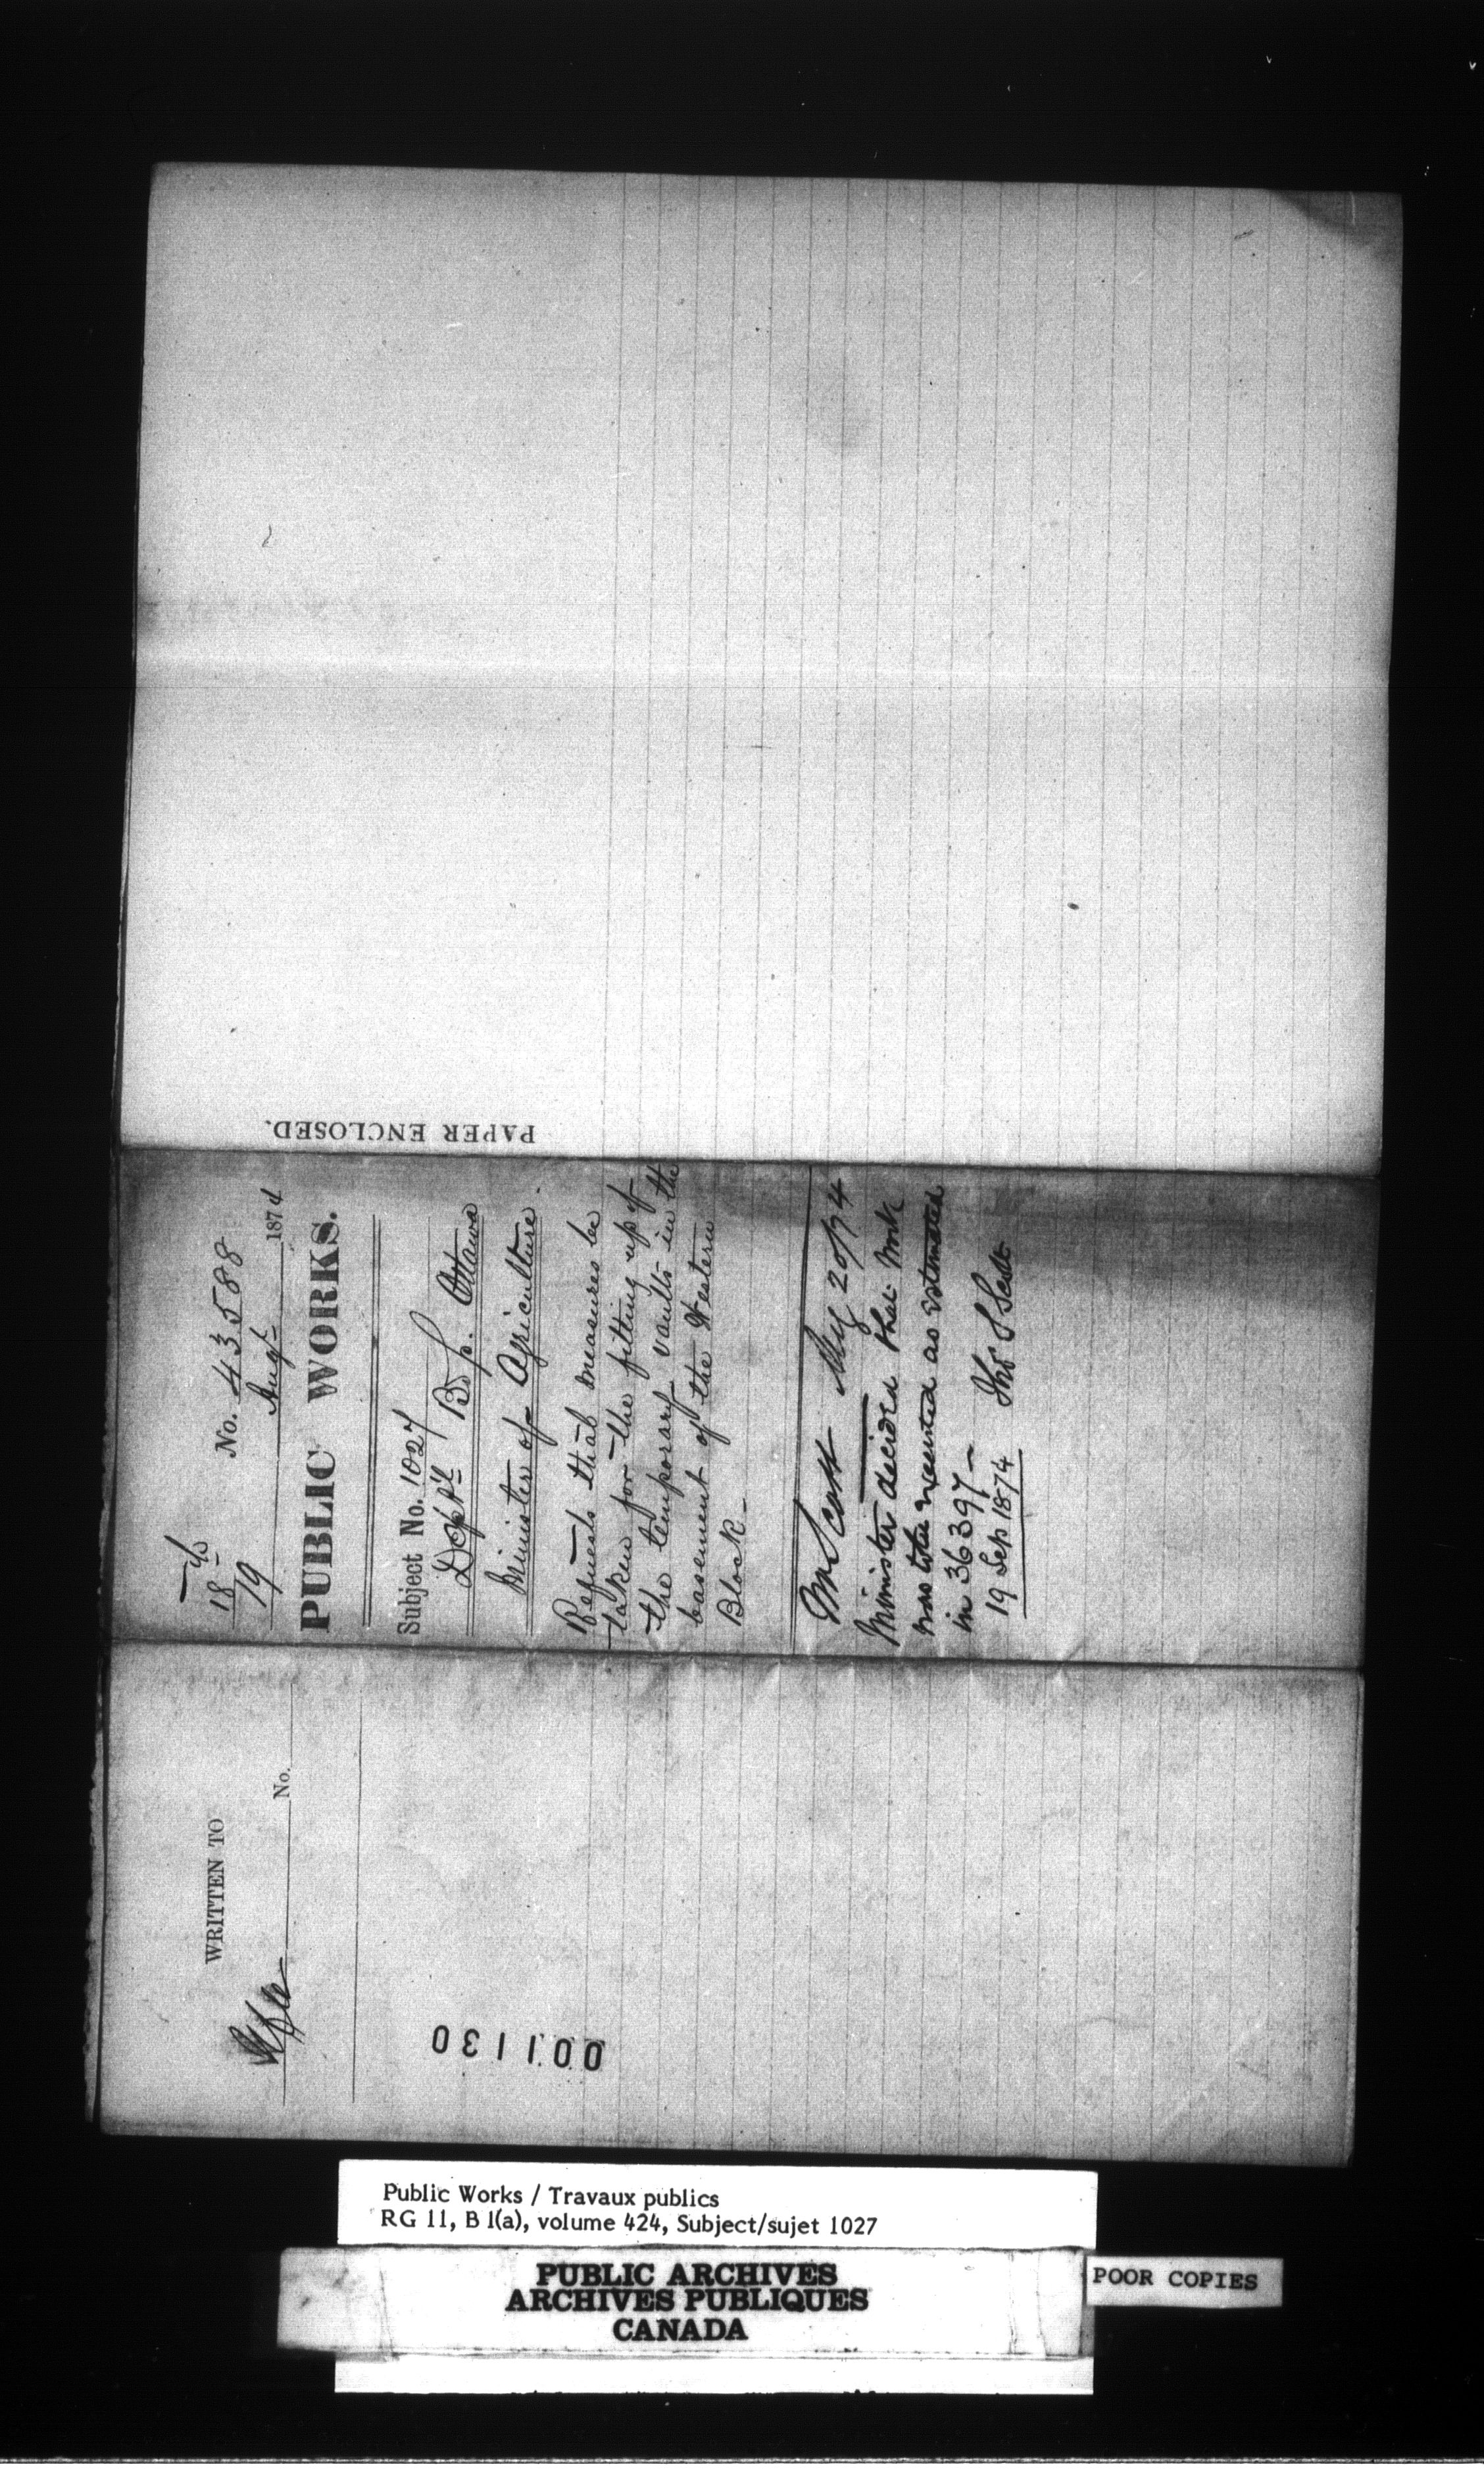 No. 43588
18
19 Augt 1874
PUBLIC WORKS.
Subject No. 1027
Deptl Bs. Ottawa
Minister of Agriculture
Requests that measures be
taken for the fitting up of
the temporary vaults in the
basement of the Western
Block
Mr Scott Aug 20/74
Minister decided that work
was to be executed as estimated
in 36397 —
19 Sep 1874
PAPER ENCLOSED.
WRITTEN TO
No.
001130
Public Works / Travaux publics
RG 11, B 1(a), volume 424, Subject/sujet 1027
PUBLIC ARCHIVES
ARCHIVES PUBLIQUES
CANADA
POOR COPIES